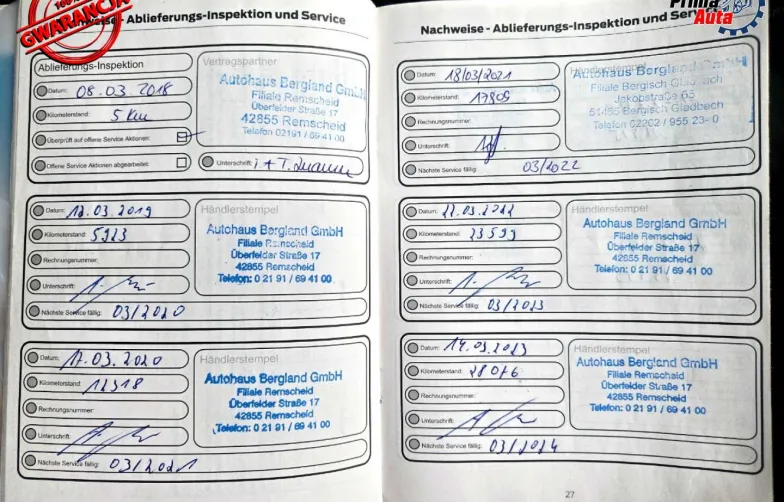 100%
GWARANCJA
Nachweise - Ablieferungs-Inspektion und Service
Ablieferungs-Inspektion
Datum: 08.03.2018
Kilometerstand: 5 Km
Überprüft auf offene Service Aktionen:
Offene Service Aktionen abgearbeitet:
Vertragspartner
Autohaus Bergland GmbH
Filiale Remscheid
Überfelder Straße 17
42855 Remscheid
Telefon 02191 / 69 41 00
Unterschrift:
Datum: 12.03.2019
Kilometerstand: 5923
Rechnungsnummer:
Unterschrift:
Nächste Service fällig: 03/2020
Händlerstempel
Autohaus Bergland GmbH
Filiale Remscheid
Überfelder Straße 17
42855 Remscheid
Telefon: 0 21 91 / 69 41 00
Datum: 17.03.2020
Kilometerstand: 12318
Rechnungsnummer:
Unterschrift:
Nächste Service fällig: 03/2021
Händlerstempel
Autohaus Bergland GmbH
Filiale Remscheid
Überfelder Straße 17
42855 Remscheid
Telefon: 0 21 91 / 69 41 00
Prima
Auta
Nachweise - Ablieferungs-Inspektion und Service
Datum: 18/03/2021
Kilometerstand: 17809
Rechnungsnummer:
Unterschrift:
Nächste Service fällig: 03/2022
Händlerstempel
Autohaus Bergland GmbH
Filiale Bergisch Gladbach
Jakobstraße 65
51465 Bergisch Gladbach
Telefon 02202 / 955 23-0
Datum: 22.03.2022
Kilometerstand: 23599
Rechnungsnummer:
Unterschrift:
Nächste Service fällig: 03/2023
Händlerstempel
Autohaus Bergland GmbH
Filiale Remscheid
Überfelder Straße 17
42855 Remscheid
Telefon: 0 21 91 / 69 41 00
Datum: 14.03.2023
Kilometerstand: 28076
Rechnungsnummer:
Unterschrift:
Nächste Service fällig: 03/2024
Händlerstempel
Autohaus Bergland GmbH
Filiale Remscheid
Überfelder Straße 17
42855 Remscheid
Telefon: 0 21 91 / 69 41 00
27